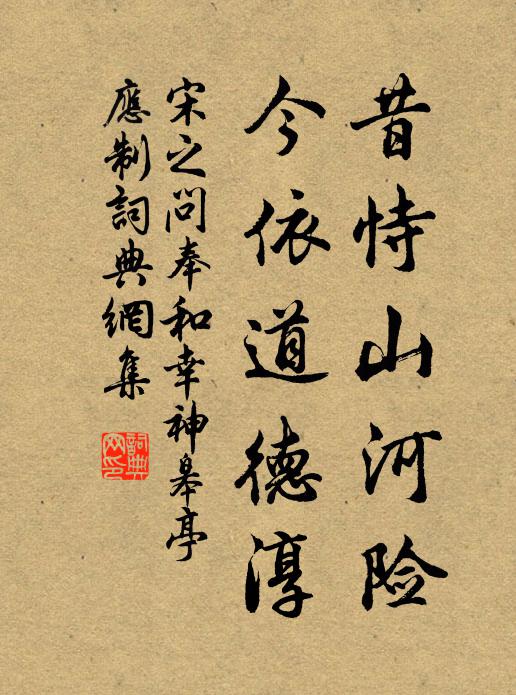 昔恃山河险
今依道德淳
宋之问奉和幸神皋亭
應制詞典網集
詞典
网印